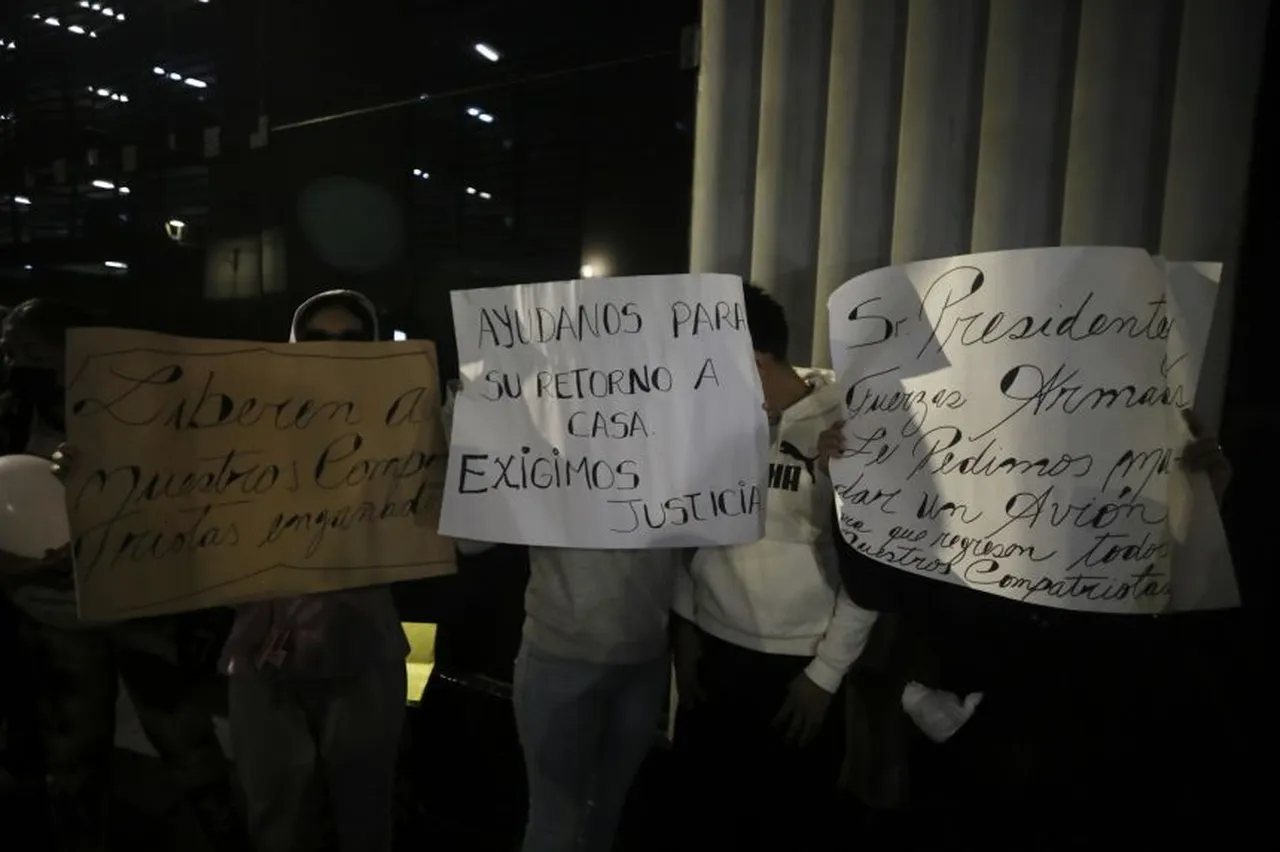 Liberen a
Nuestros Comp
triotas engañad
AYUDANOS PARA
SU RETORNO A
CASA.
EXIGIMOS
JUSTICIA
Sr. Presidente
Fuerzas Armadas
Le Pedimos man-
dar un Avión
que regresen todos
Nuestros Compatriotas